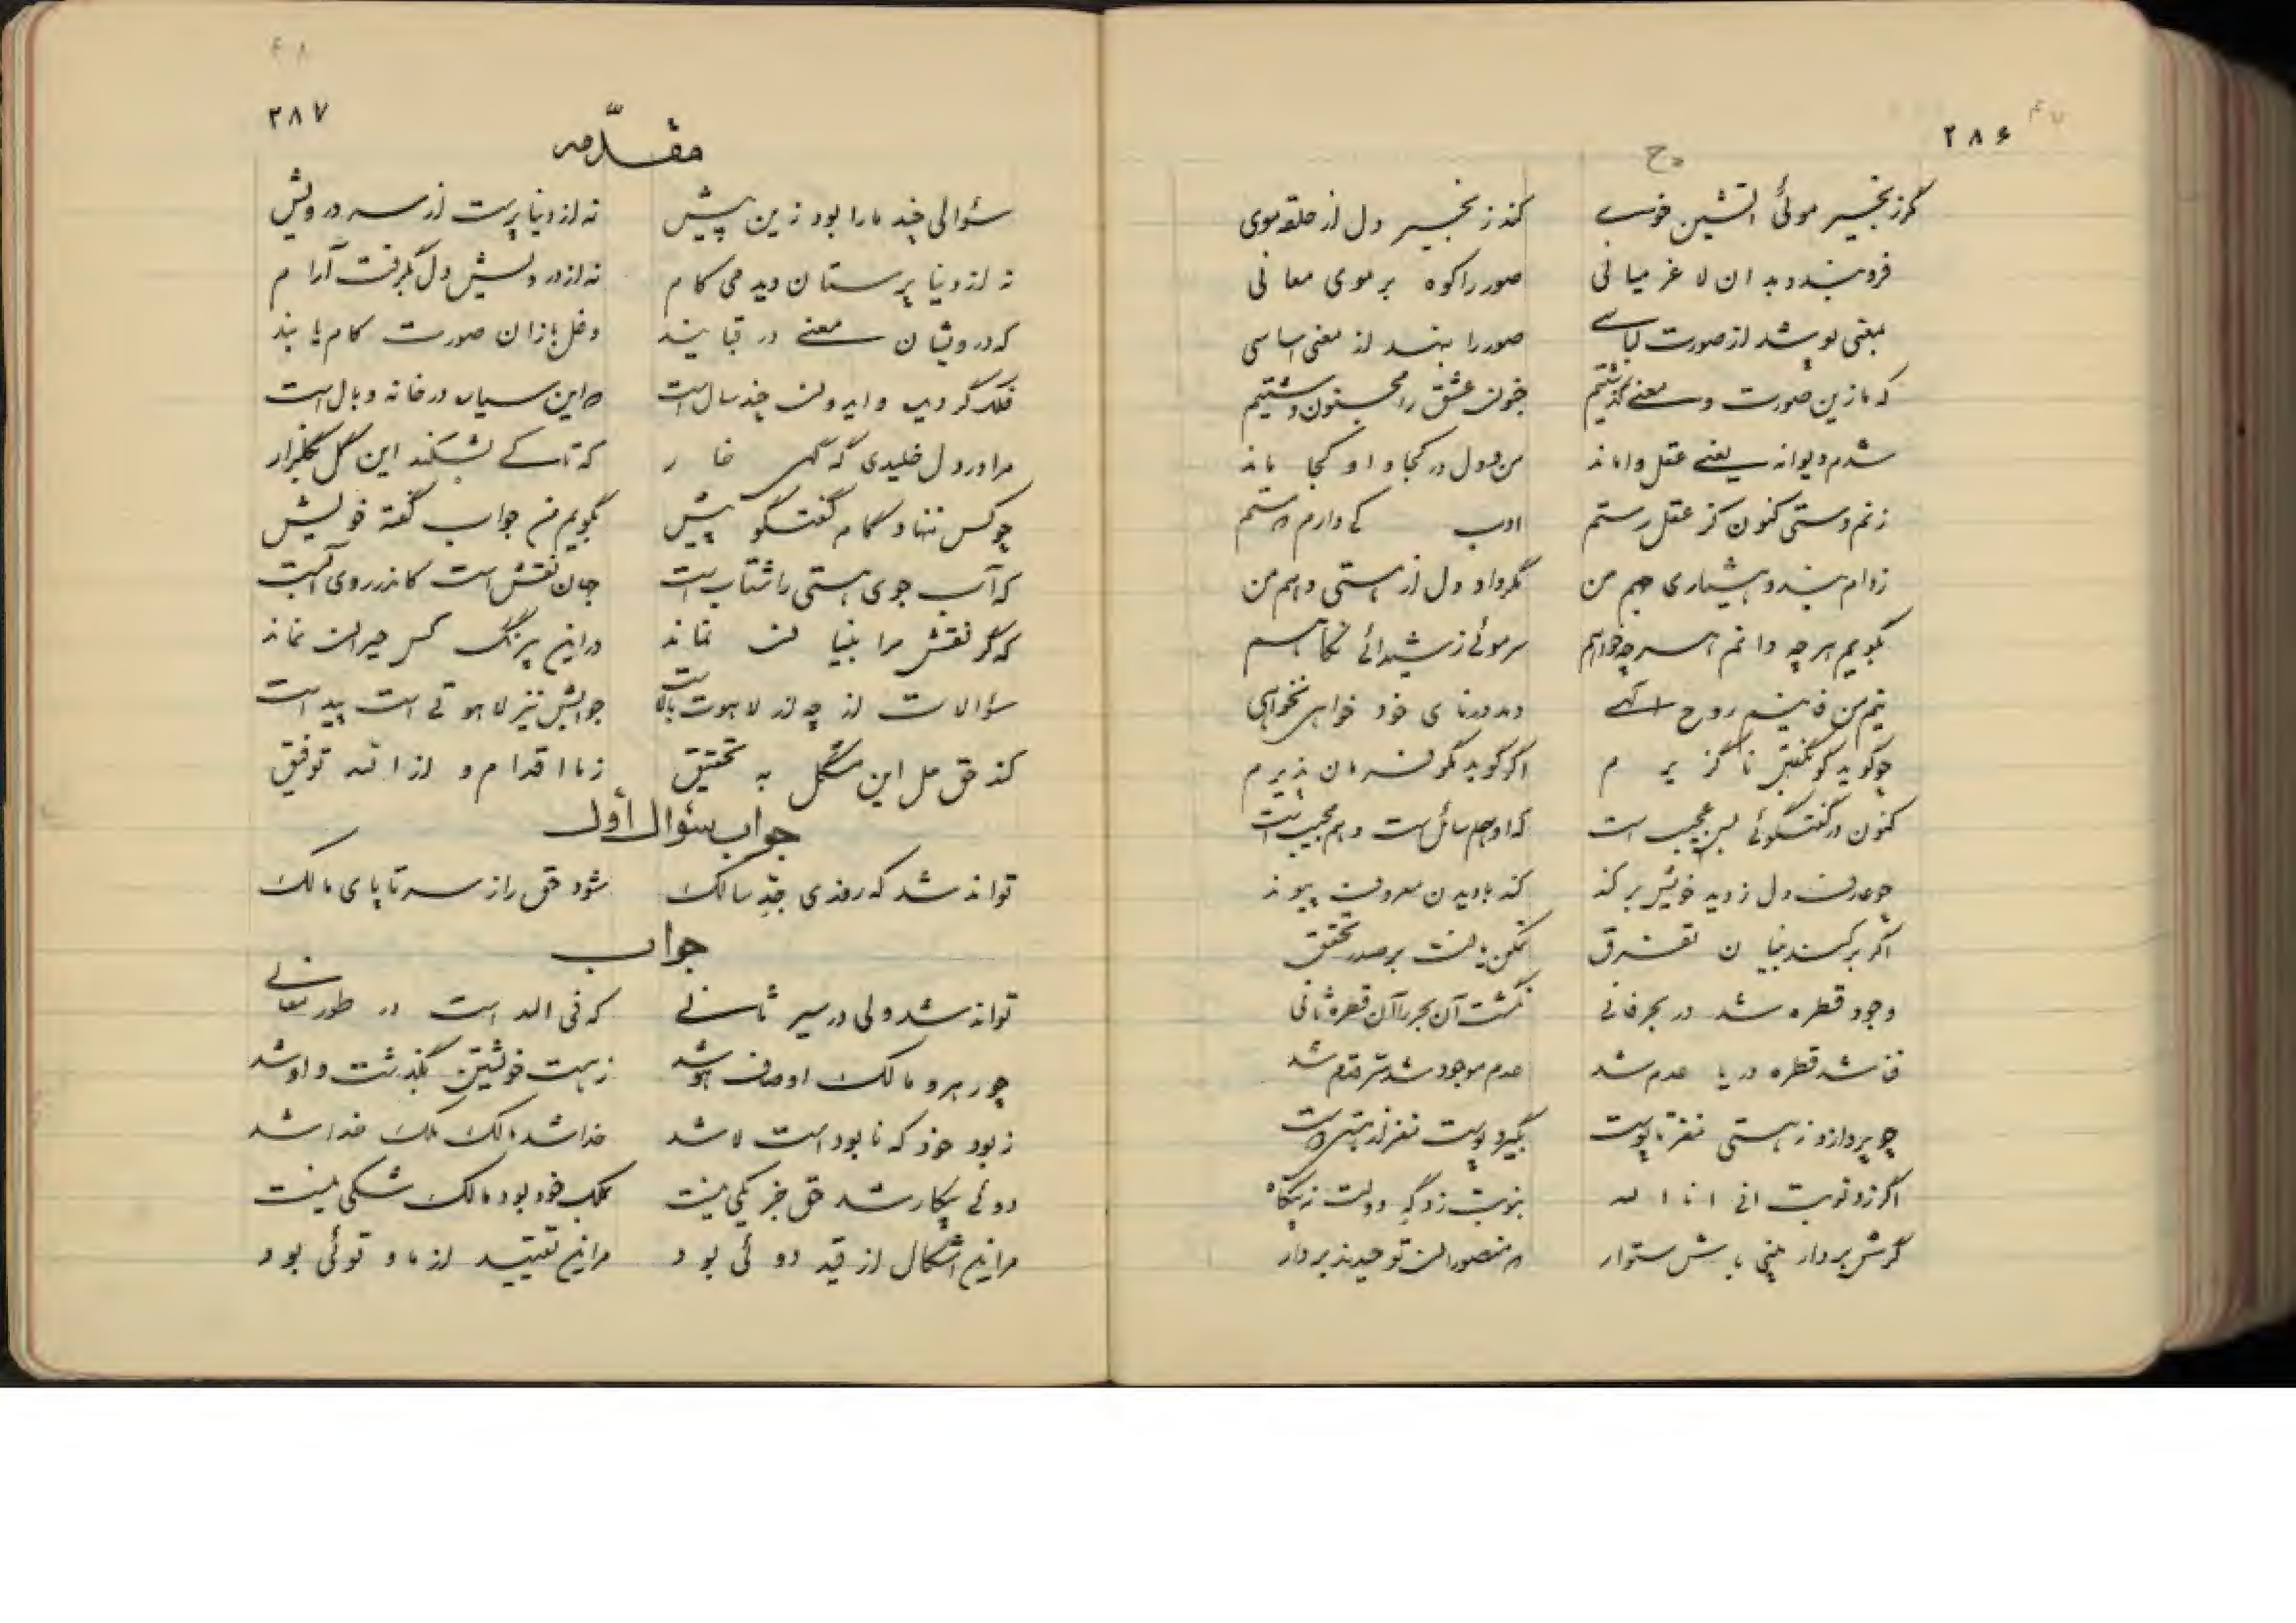 ۲۸۶
گر زنجیر موئی آتشین خوی کند زنجیر دل از حلقه موی
فروبندد بدان لاغر میانی صور را کوه بر موی معانی
بمعنی پوشد از صورت لباسی صور را بنهد از معنی اساسی
که ما زین صورت و معنی گذشتیم جنون عشق را مجنون دشتیم
شدم دیوانه یعنی عقل وا ماند من و دل در کجا و او کجا ماند
زنم دستی کنون کز عقل رستم ادب کی دارم
بند و هشیاری هم من دل از هستی و هم من
بگویم هر چه دانم هر چه خواهم سر موئی ز شیدائی نکاهم
نیم من روح الهی خود خواهی نخواهی
چو گوید گو بگفتن ناگزیرم اگر گوید مگو فرمان پذیرم
کنون در گفتگوئی بس عجیب است که او هم سائل است و هم مجیب است
دل ز دید خویش بر کند کند با دیدن پیوند
اگر بر کند بنیان تفرق تمکن یافت بر صدر تحقق
وجود قطره شد در بحر فانی نگشت آن بحر را آن قطره ثانی
فنا شد قطره دریا عدم شد عدم موجود شد قدم شد
چو پردازد ز هستی مغز تا پوست بگیرد پوست مغز از هستی
اگر زد نوبت انی انا الله بنوبت زد گه دولت
گرش بر دار بینی باش ستوار منصور است توحیدند بردار
۲۸۷
مقدّمه
سئوالی چند ما را بود زین پیش نه از دنیا پرست از سر درویش
نه از دنیا پرستان دیدمی کام نه از درویش دل بگرفت آرام
که درویشان معنی در قبایند دغل بازان صورت کام یابند
فلک گردید و ایدون چند سال است این سیاه در خانه وبال است
مرا در دل خلیدی گه گهی خار که تا کی بشکفد این گل بگلزار
چو کس ننهاد گام گفتگو پیش بگویم من جواب گفته خویش
که آب جوی هستی را شتاب است جهان نقش است کاندر روی آبست
که گر نقش مرا بنیان نماند در این کس حیران نماند
سئوالات از چه از لاهوت بالاست جوابش نیز لاهوتی است پیداست
کند حق حل این مشکل به تحقیق ز ما اقدام و از الله توفیق
جواب سئوال أول
تواند شد که رندی جدّ سالک شود حق را ز سر تا پای مالک
جواب
تواند شد ولی در سیر ثانی که فی الله است در طور معانی
چو رهرو مالک اوصاف هو شد ز هست خویشتن بگذشت و او شد
ز بود خود که نابود است لا شد خدا شد مالک ملک خدا شد
دوئی بیکار شد حق جز یکی نیست بملک خود بود مالک شکی نیست
مر این اشکال از قید دوئی بود مر این تقیید از ما و توئی بود